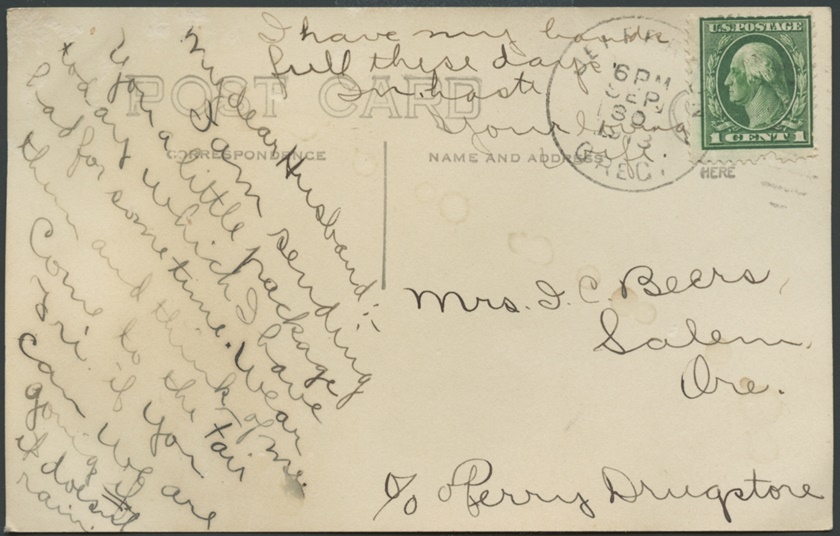 My dear Husband:-
I am sending
you a little package
today which I have
had for sometime. Wear
them and think of me.
Come to the Fair
Fri. if you
can. We are
going if
it doesn't
rain.
I have my hands
full these days
In haste
Your loving
wife.
POST CARD
CORRESPONDENCE
NAME AND ADDRESS
HERE
6 PM
SEP
30
OREG.
U.S. POSTAGE
1 CENT 1
Mrs. I. C. Beers,
Salem,
Ore.
c/o Perry Drugstore